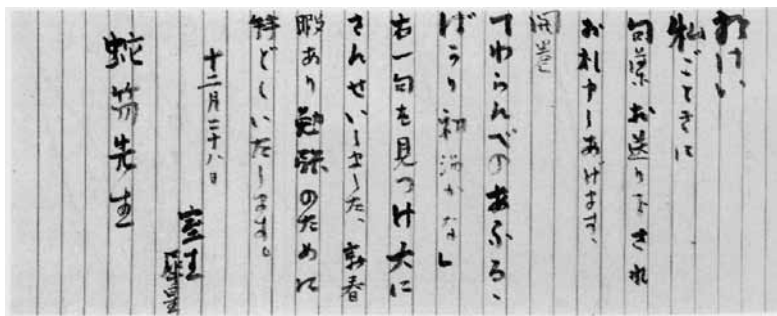 拝けい
私ごときに
句集お送り下され
お礼申しあげます、
開巻
「わらんべの おぼるゝ
ばかり 初湯かな」
右一句を見つけ大に
さんせいしました、新春
暇あり勉強のために
拝どくいたします。
十二月二十八日
室生
犀星
蛇笏先生